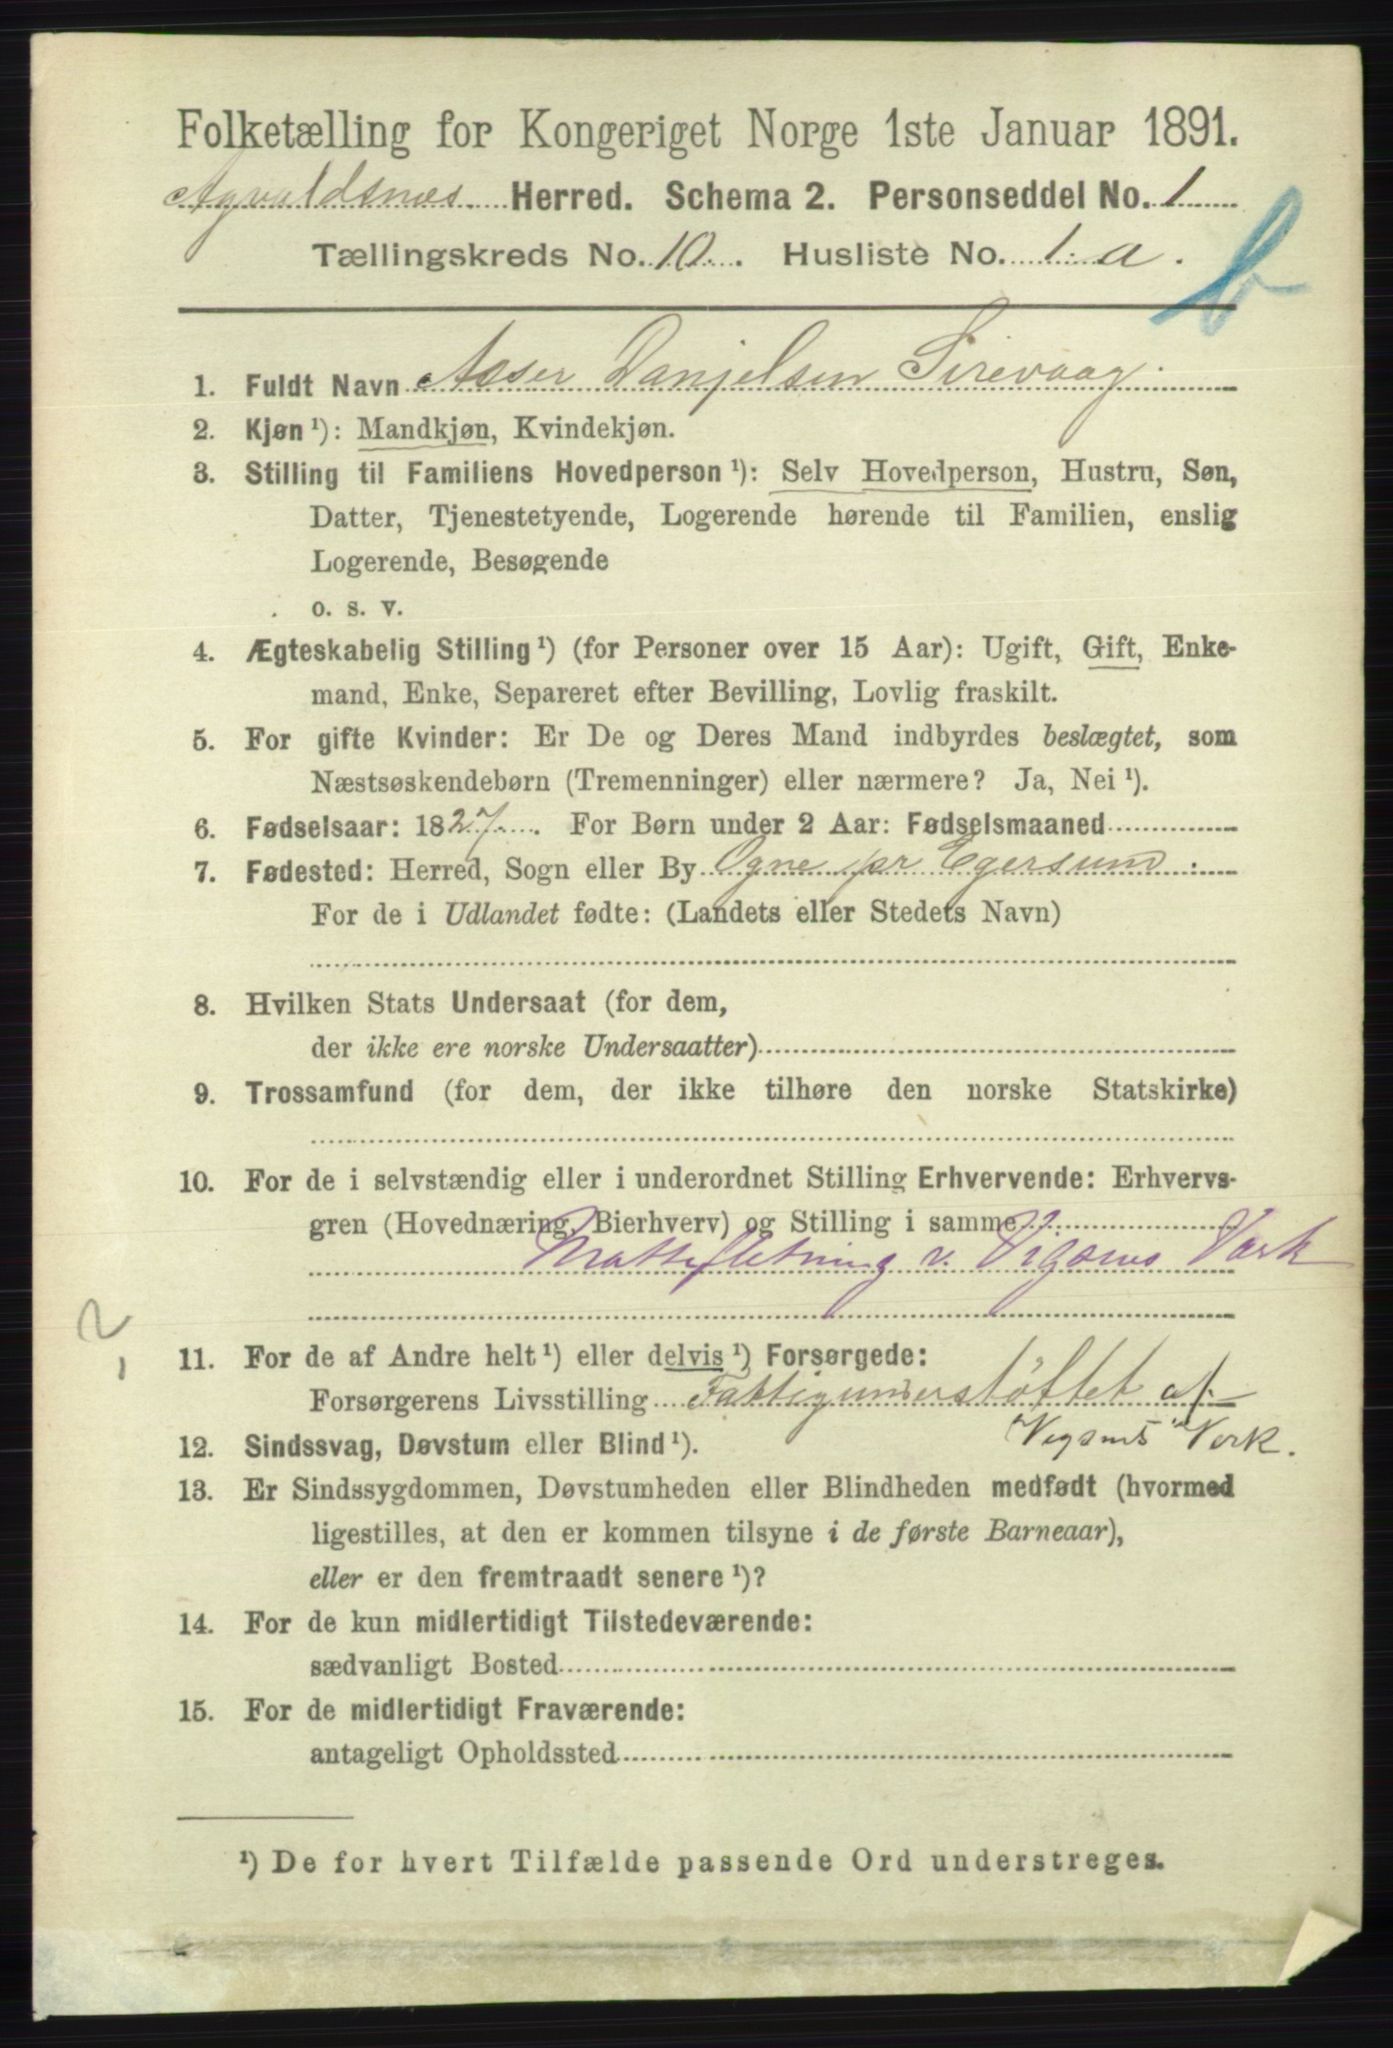 Folketælling for Kongeriget Norge 1ste Januar 1891.
Agvaldsnæs Herred. Schema 2. Personseddel No. 1
Tællingskreds No. 10. Husliste No. 1. a.
b
1. Fuldt Navn Asser Danjelsen Sirevaag.
2. Kjøn¹): Mandkjøn, Kvindekjøn.
3. Stilling til Familiens Hovedperson¹): Selv Hovedperson, Hustru, Søn,
Datter, Tjenestetyende, Logerende hørende til Familien, enslig
Logerende, Besøgende
o. s. v.
4. Ægteskabelig Stilling¹) (for Personer over 15 Aar): Ugift, Gift, Enke-
mand, Enke, Separeret efter Bevilling, Lovlig fraskilt.
5. For gifte Kvinder: Er De og Deres Mand indbyrdes beslægtet, som
Næstsøskendebørn (Tremenninger) eller nærmere? Ja, Nei¹).
6. Fødselsaar: 1827. For Børn under 2 Aar: Fødselsmaaned
7. Fødested: Herred, Sogn eller By Ogne pr Egersund.
For de i Udlandet fødte: (Landets eller Stedets Navn)
8. Hvilken Stats Undersaat (for dem,
der ikke ere norske Undersaatter)
9. Trossamfund (for dem, der ikke tilhøre den norske Statskirke)
10. For de i selvstændig eller i underordnet Stilling Erhvervende: Erhvervs-
gren (Hovednæring, Bierhverv) og Stilling i samme
Mattefletning v. Vigsnes Værk
2
11. For de af Andre helt¹) eller delvis¹) Forsørgede:
Forsørgerens Livsstilling Fattigunderstöttet af
"Vigsnes" Verk.
12. Sindssvag, Døvstum eller Blind¹).
13. Er Sindssygdommen, Døvstumheden eller Blindheden medfødt (hvormed
ligestilles, at den er kommen tilsyne i de første Barneaar),
eller er den fremtraadt senere¹)?
14. For de kun midlertidigt Tilstedeværende:
sædvanligt Bosted
15. For de midlertidigt Fraværende:
antageligt Opholdssted
¹) De for hvert Tilfælde passende Ord understreges.